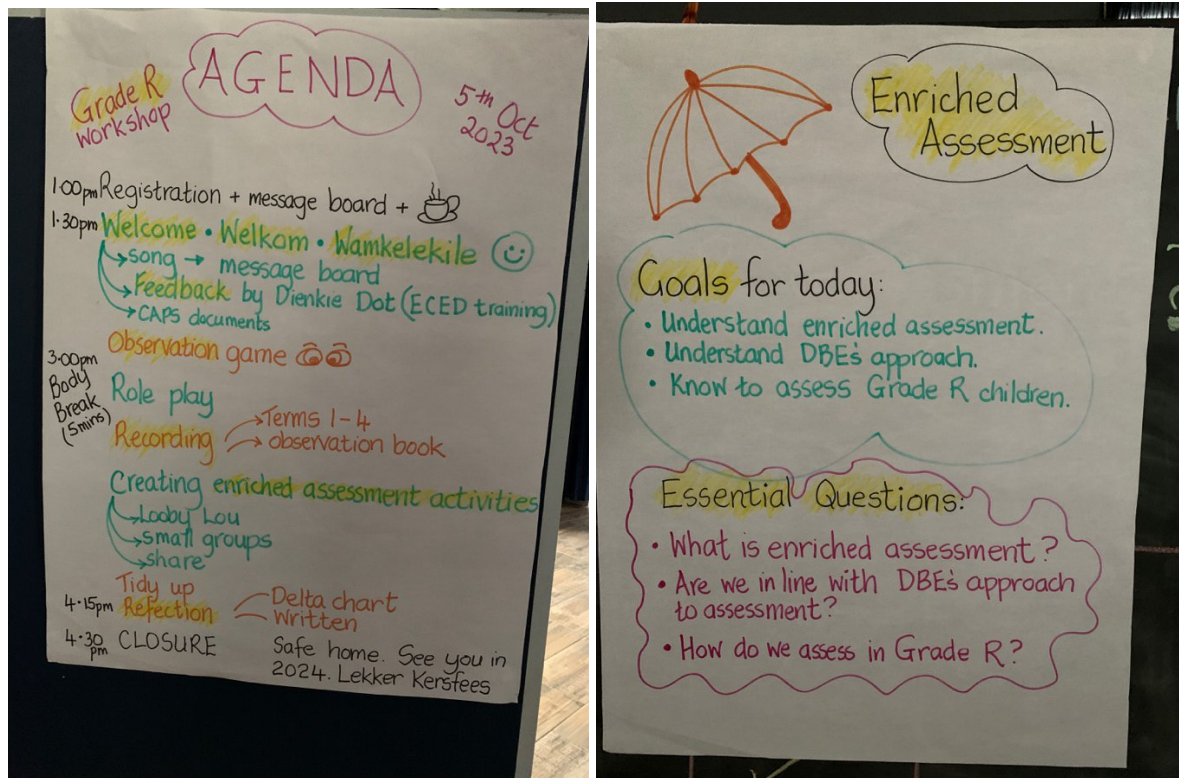 AGENDA
Grade R
workshop
5th Oct
2023
1.00pm Registration + message board +
1.30pm Welcome • Welkom • Wamkelekile
song → message board
Feedback by Dienkie Dot (ECED training)
CAPS documents
Observation game
3.00pm
Body
Break
(5mins)
Role play
Recording
Terms 1-4
observation book
Creating enriched assessment activities
Looby Lou
small groups
share
Tidy up
4.15pm Refection
Delta chart
Written
4.30
pm
CLOSURE
Safe home. See you in
2024. Lekker Kersfees
Enriched
Assessment
Goals for today:
• Understand enriched assessment.
• Understand DBE's approach.
• Know to assess Grade R children.
Essential Questions:
• What is enriched assessment?
• Are we in line with DBE's approach
to assessment?
• How do we assess in Grade R?